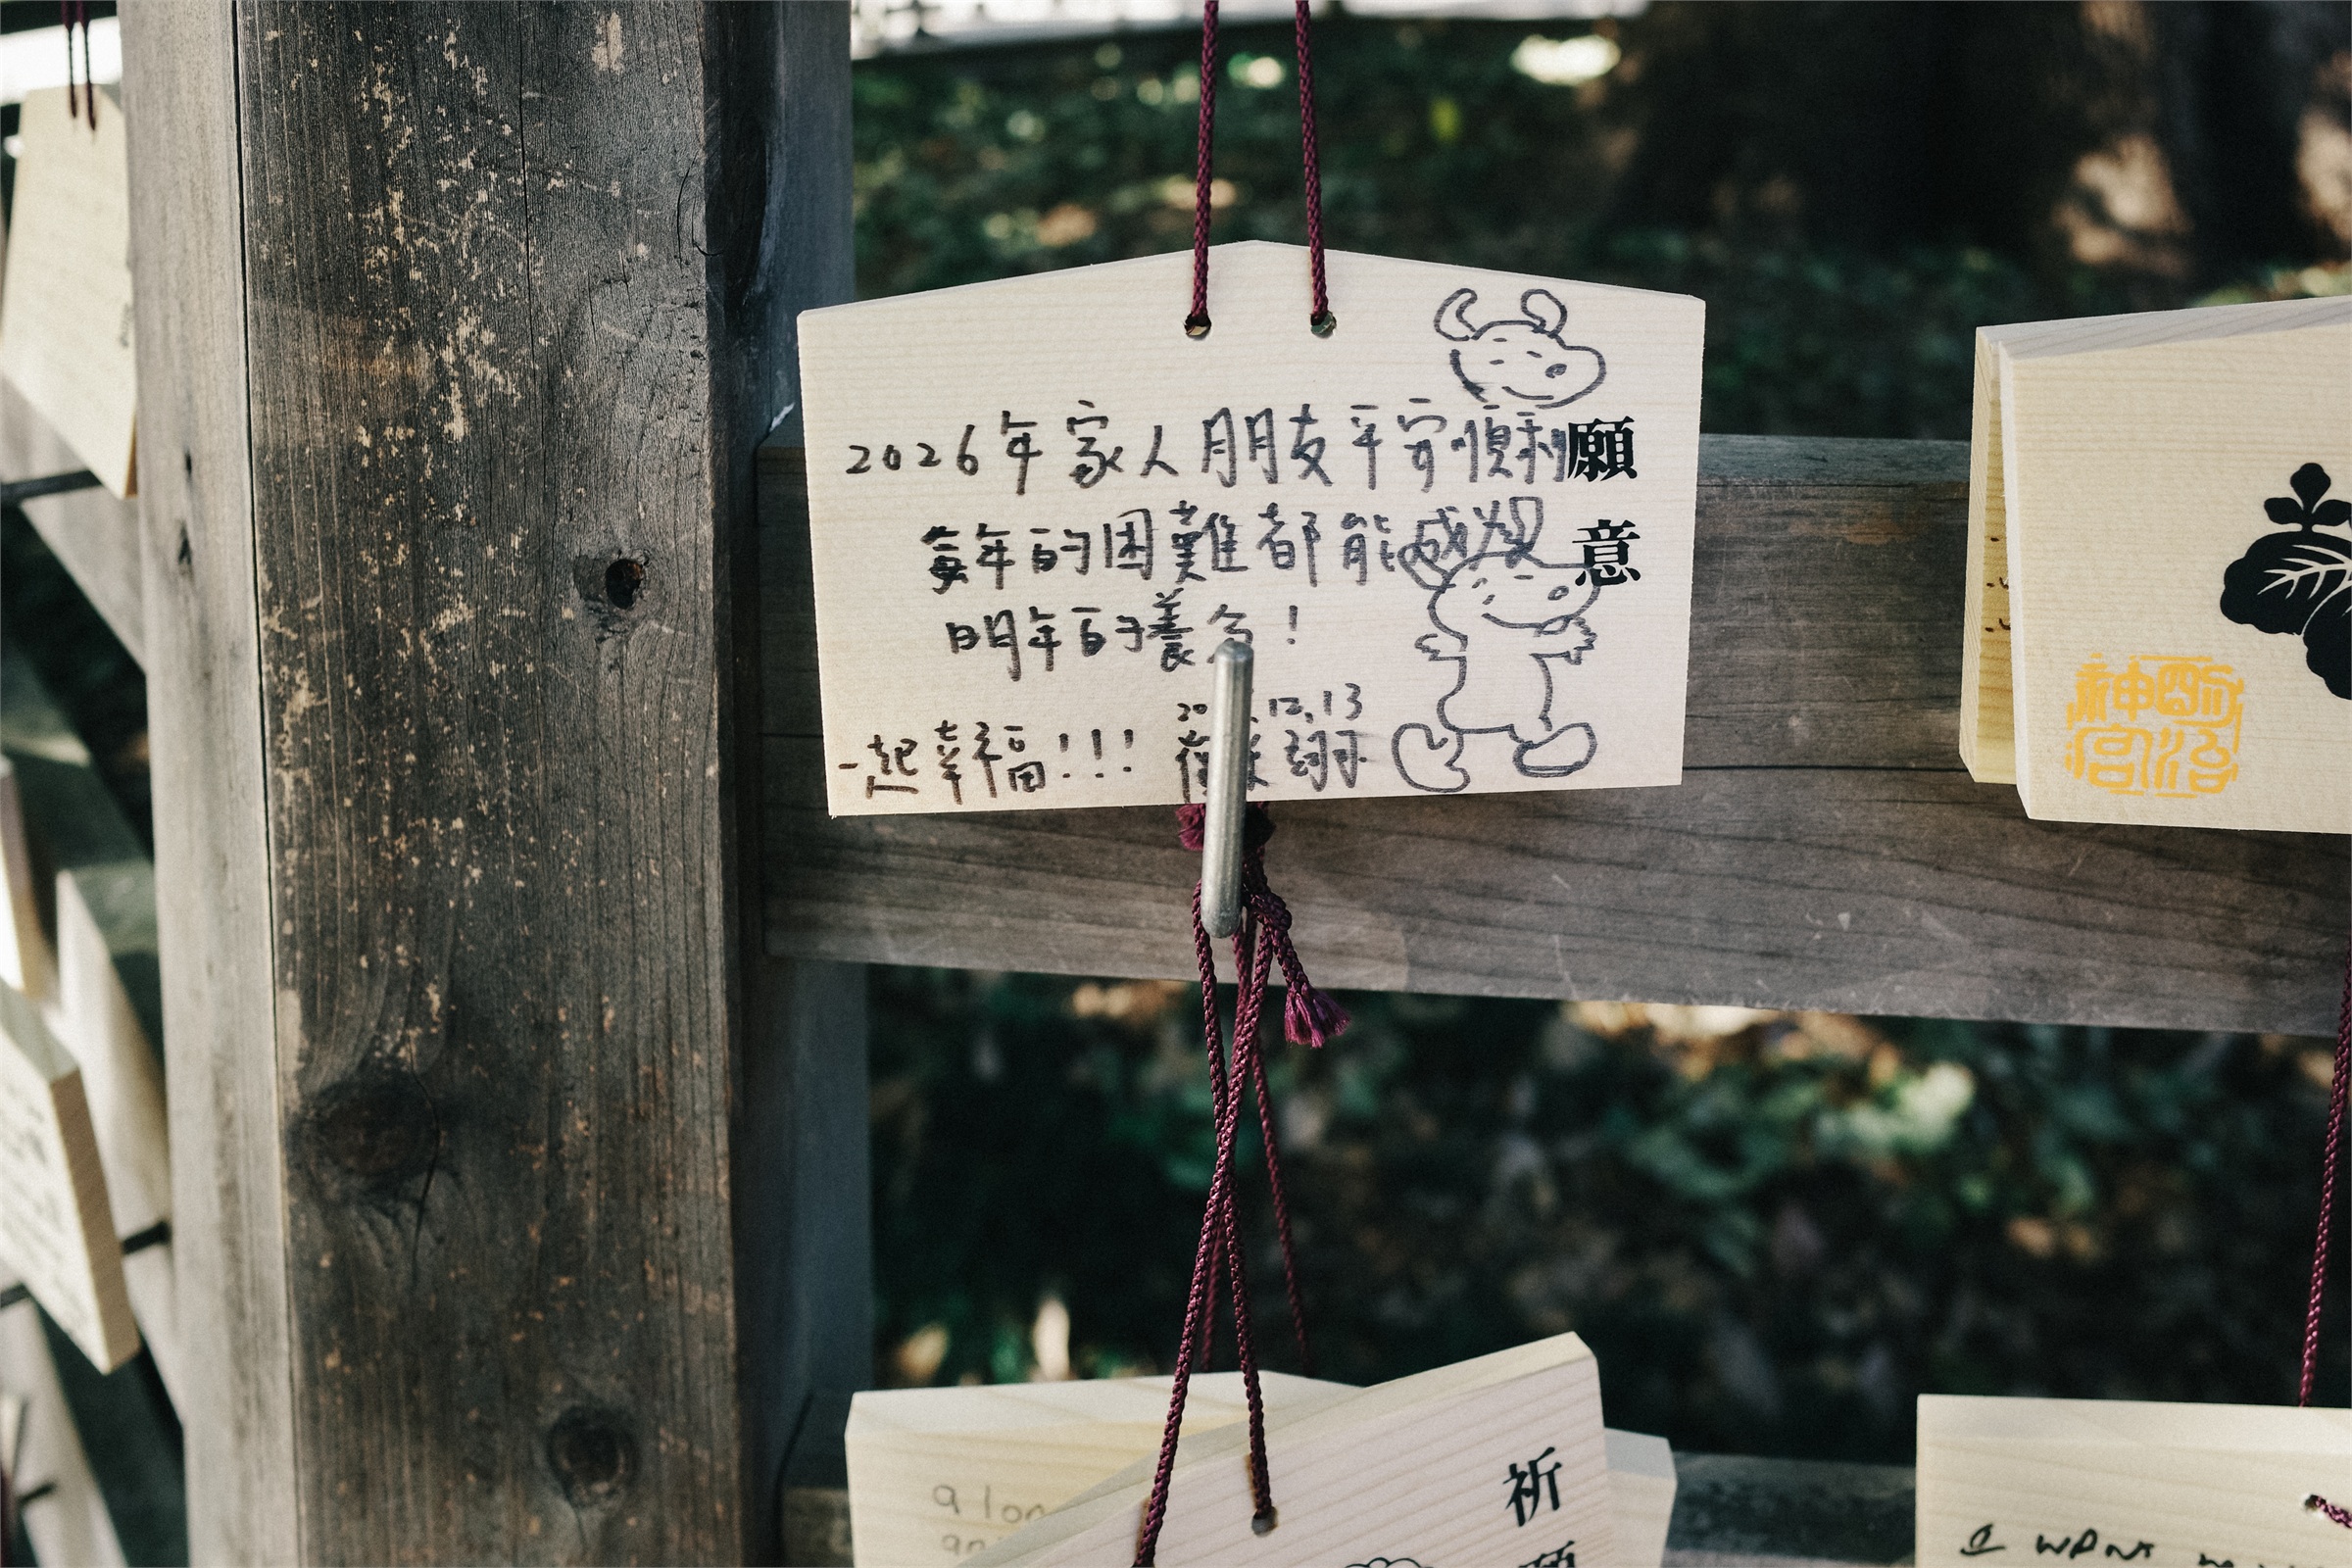 2026年家人朋友平安順利
每年的困難都能成為
明年的養分!
12.13
一起幸福!!!
願意
明治神宮
a lon
祈願
I WANT